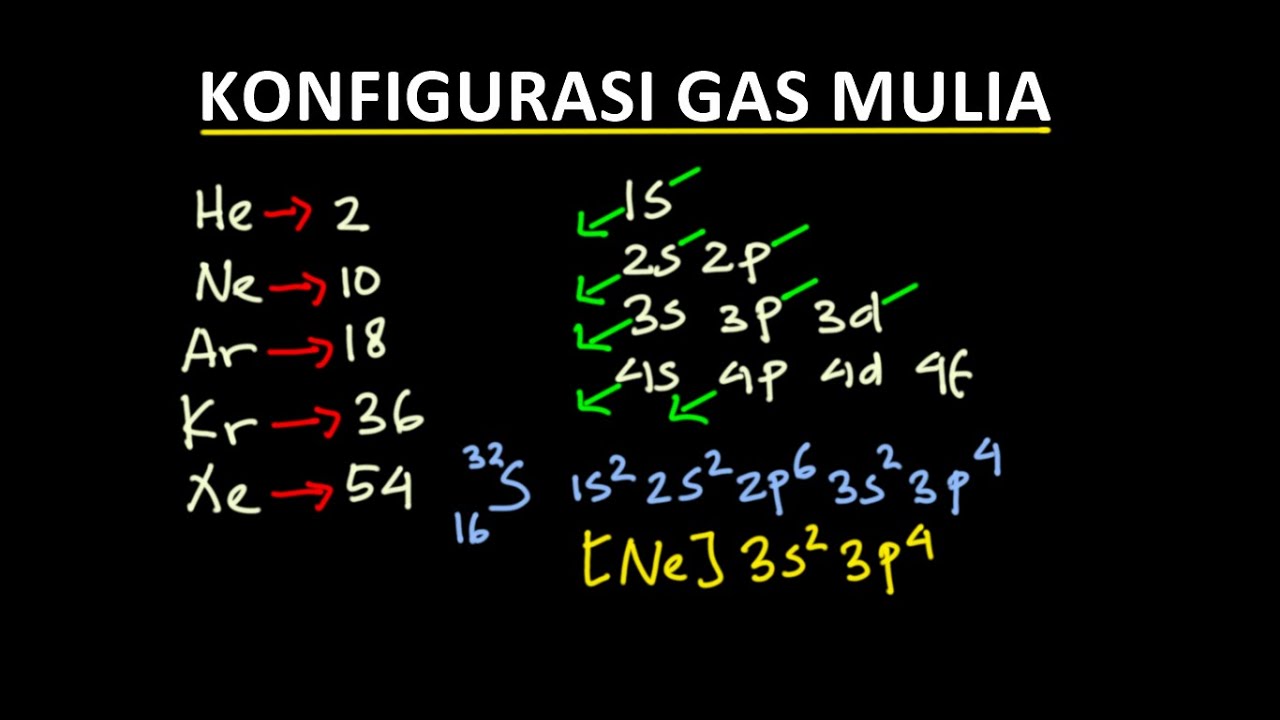 KONFIGURASI GAS MULIA
He → 2
Ne → 10
Ar → 18
Kr → 36
Xe → 54
1s
2s 2p
3s 3p 3d
4s 4p 4d 4f
³²₁₆S 1s² 2s² 2p⁶ 3s² 3p⁴
[Ne] 3s² 3p⁴